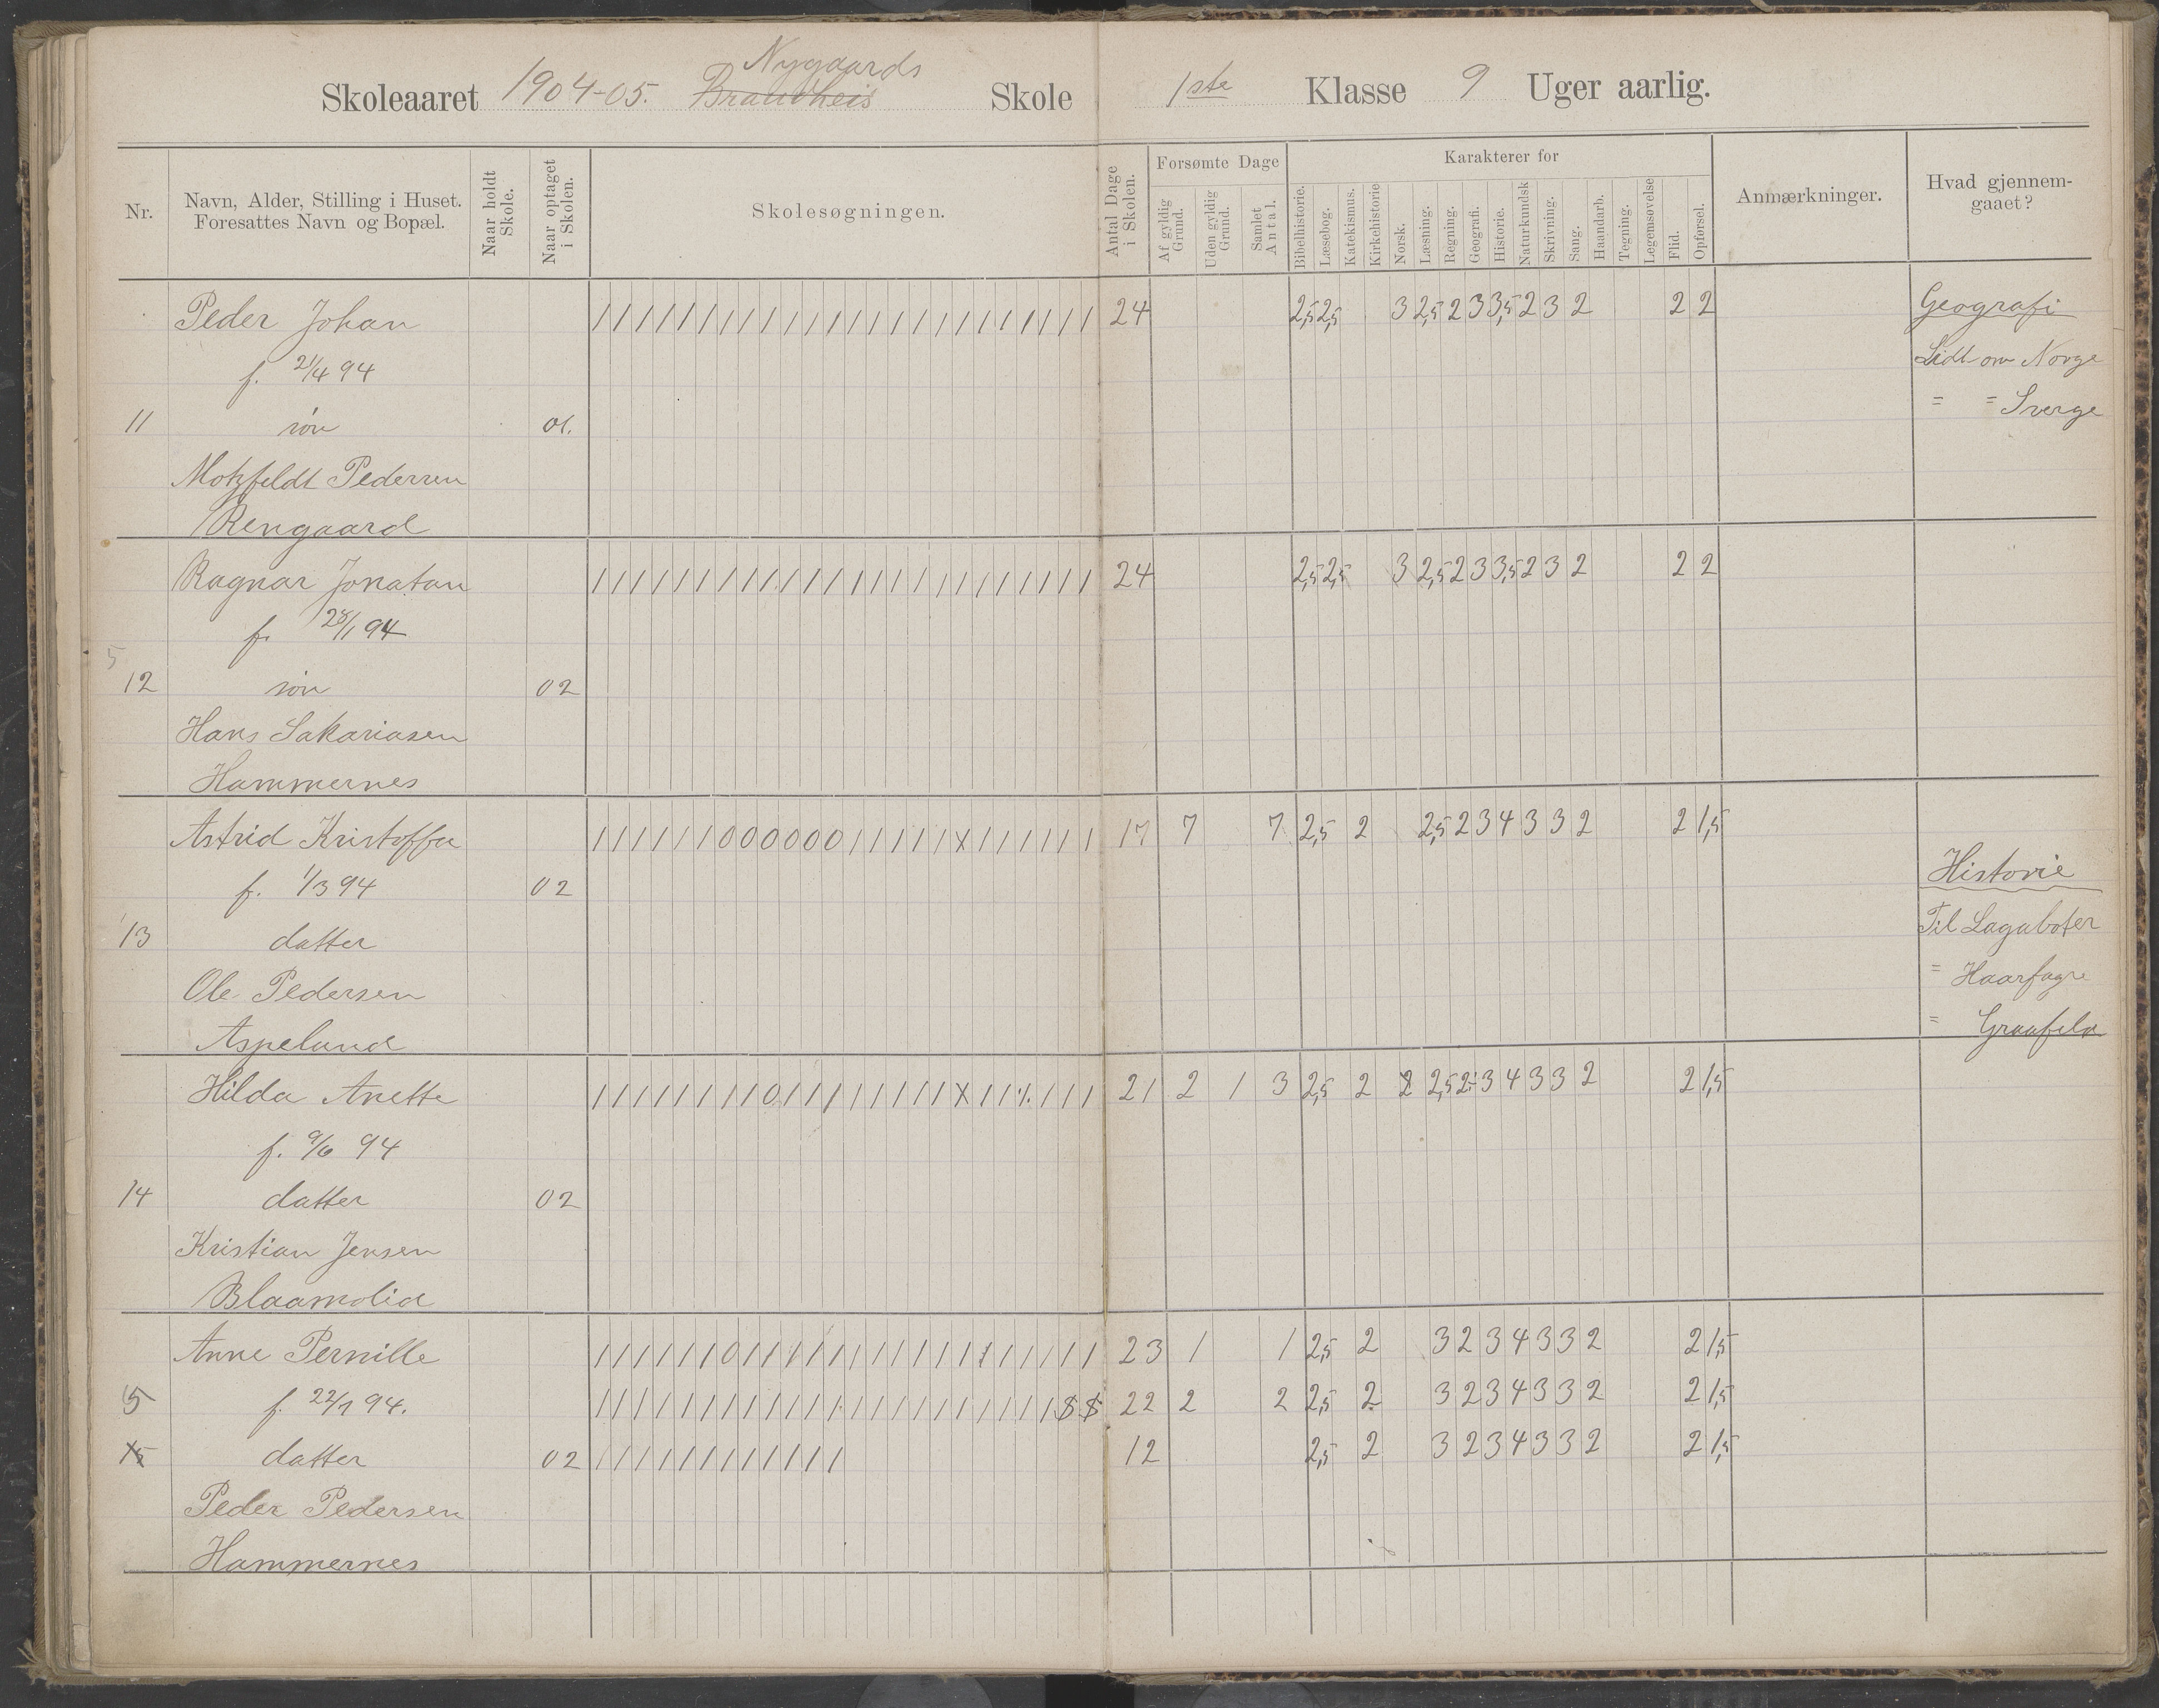 Nygaards
Skoleaaret 1904-05. Brandheis Skole 1ste Klasse 9 Uger aarlig.
Nr. Navn, Alder, Stilling i Huset. Foresattes Navn og Bopæl. Naar holdt Skole. Naar optaget i Skolen. Skolesøgningen. Antal Dage i Skolen. Forsømte Dage Af gyldig Grund. Uden gyldig Grund. Samlet Antal. Karakterer for Bibelhistorie. Læsebog. Katekismus. Kirkehistorie Norsk. Læsning. Regning. Geografi. Historie. Naturkundsk Skrivning. Sang. Haandarb. Tegning. Legemsøvelse Flid. Opførsel. Anmærkninger. Hvad gjennemgaaet?
Peder Johan / / / / / / / / / / / / / / / / / / / / / / / / 24 2,5 2,5 3 2,5 2 3 3,5 2 3 2 2 2 Geografi
f. 21/4 94 Lidt om Norge
11 søn 01. = = Sverge
Motzfeldt Pedersen
Rengaard
Ragnar Jonatan / / / / / / / / / / / / / / / / / / / / / / / / 24 2,5 2,5 3 2,5 2 3 3,5 2 3 2 2 2
f. 28/1 94
5
12 søn 02
Hans Sakariasen
Hammernes
Astrid Kristoffa / / / / / / 0 0 0 0 0 0 / / / / / X / / / / / / 17 7 7 2,5 2 2,5 2 3 4 3 3 2 2 1,5
f. 1/3 94 02 Historie
13 datter Til Lagabøter
Ole Pedersen = Haarfagre
Aspelund = Graafeld
Hilda Anette / / / / / / / / 0 / / / / / / / / X / / ·/. / / / 21 2 1 3 2,5 2 2 2,5 2 3 4 3 3 2 2 1,5
f. 9/6 94
14 datter 02
Kristian Jensen
Blaamolid
Anne Pernille / / / / / / 0 / / / / / / / / / / / / / / / / / 23 1 1 2,5 2 3 2 3 4 3 3 2 2 1,5
15 f. 22/7 94. / / / / / / / / / / / / / / / / / / / / / / $ $ 22 2 2 2,5 2 3 2 3 4 3 3 2 2 1,5
15 datter 02 / / / / / / / / / / / / 12 2,5 2 3 2 3 4 3 3 2 2 1,5
Peder Pedersen
Hammernes